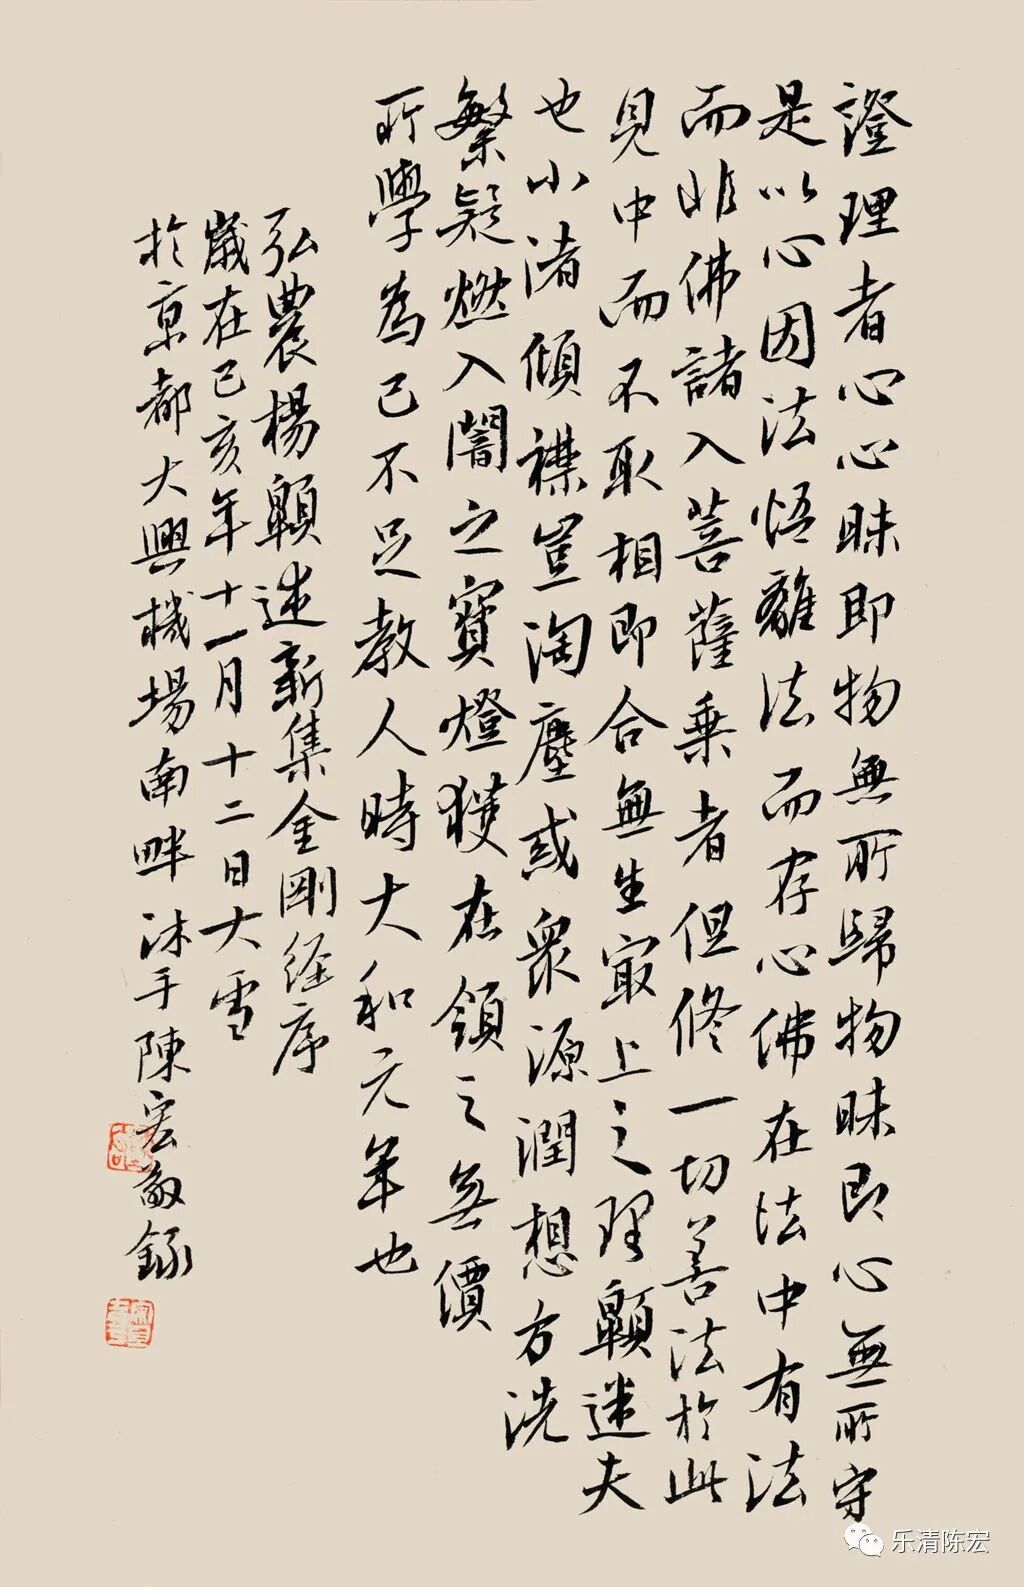 證理者心心昧即物無所歸物昧即心無所守
是以心因法悟離法而存心佛在法中有法
而非佛諸入菩薩乘者但修一切善法於此
見中而不取相即合無生寂上之理顗迷夫
也小渚傾襟豈淘塵惑衆源潤想方洗
繁疑燃入闇之寶燈獲在領之無價
所學為己不足教人時大和元年也
弘農楊顗述新集金剛經序
歲在己亥年十一月十二日大雪
於京都大興機場南畔沐手陳宏敬錄
乐清陈宏